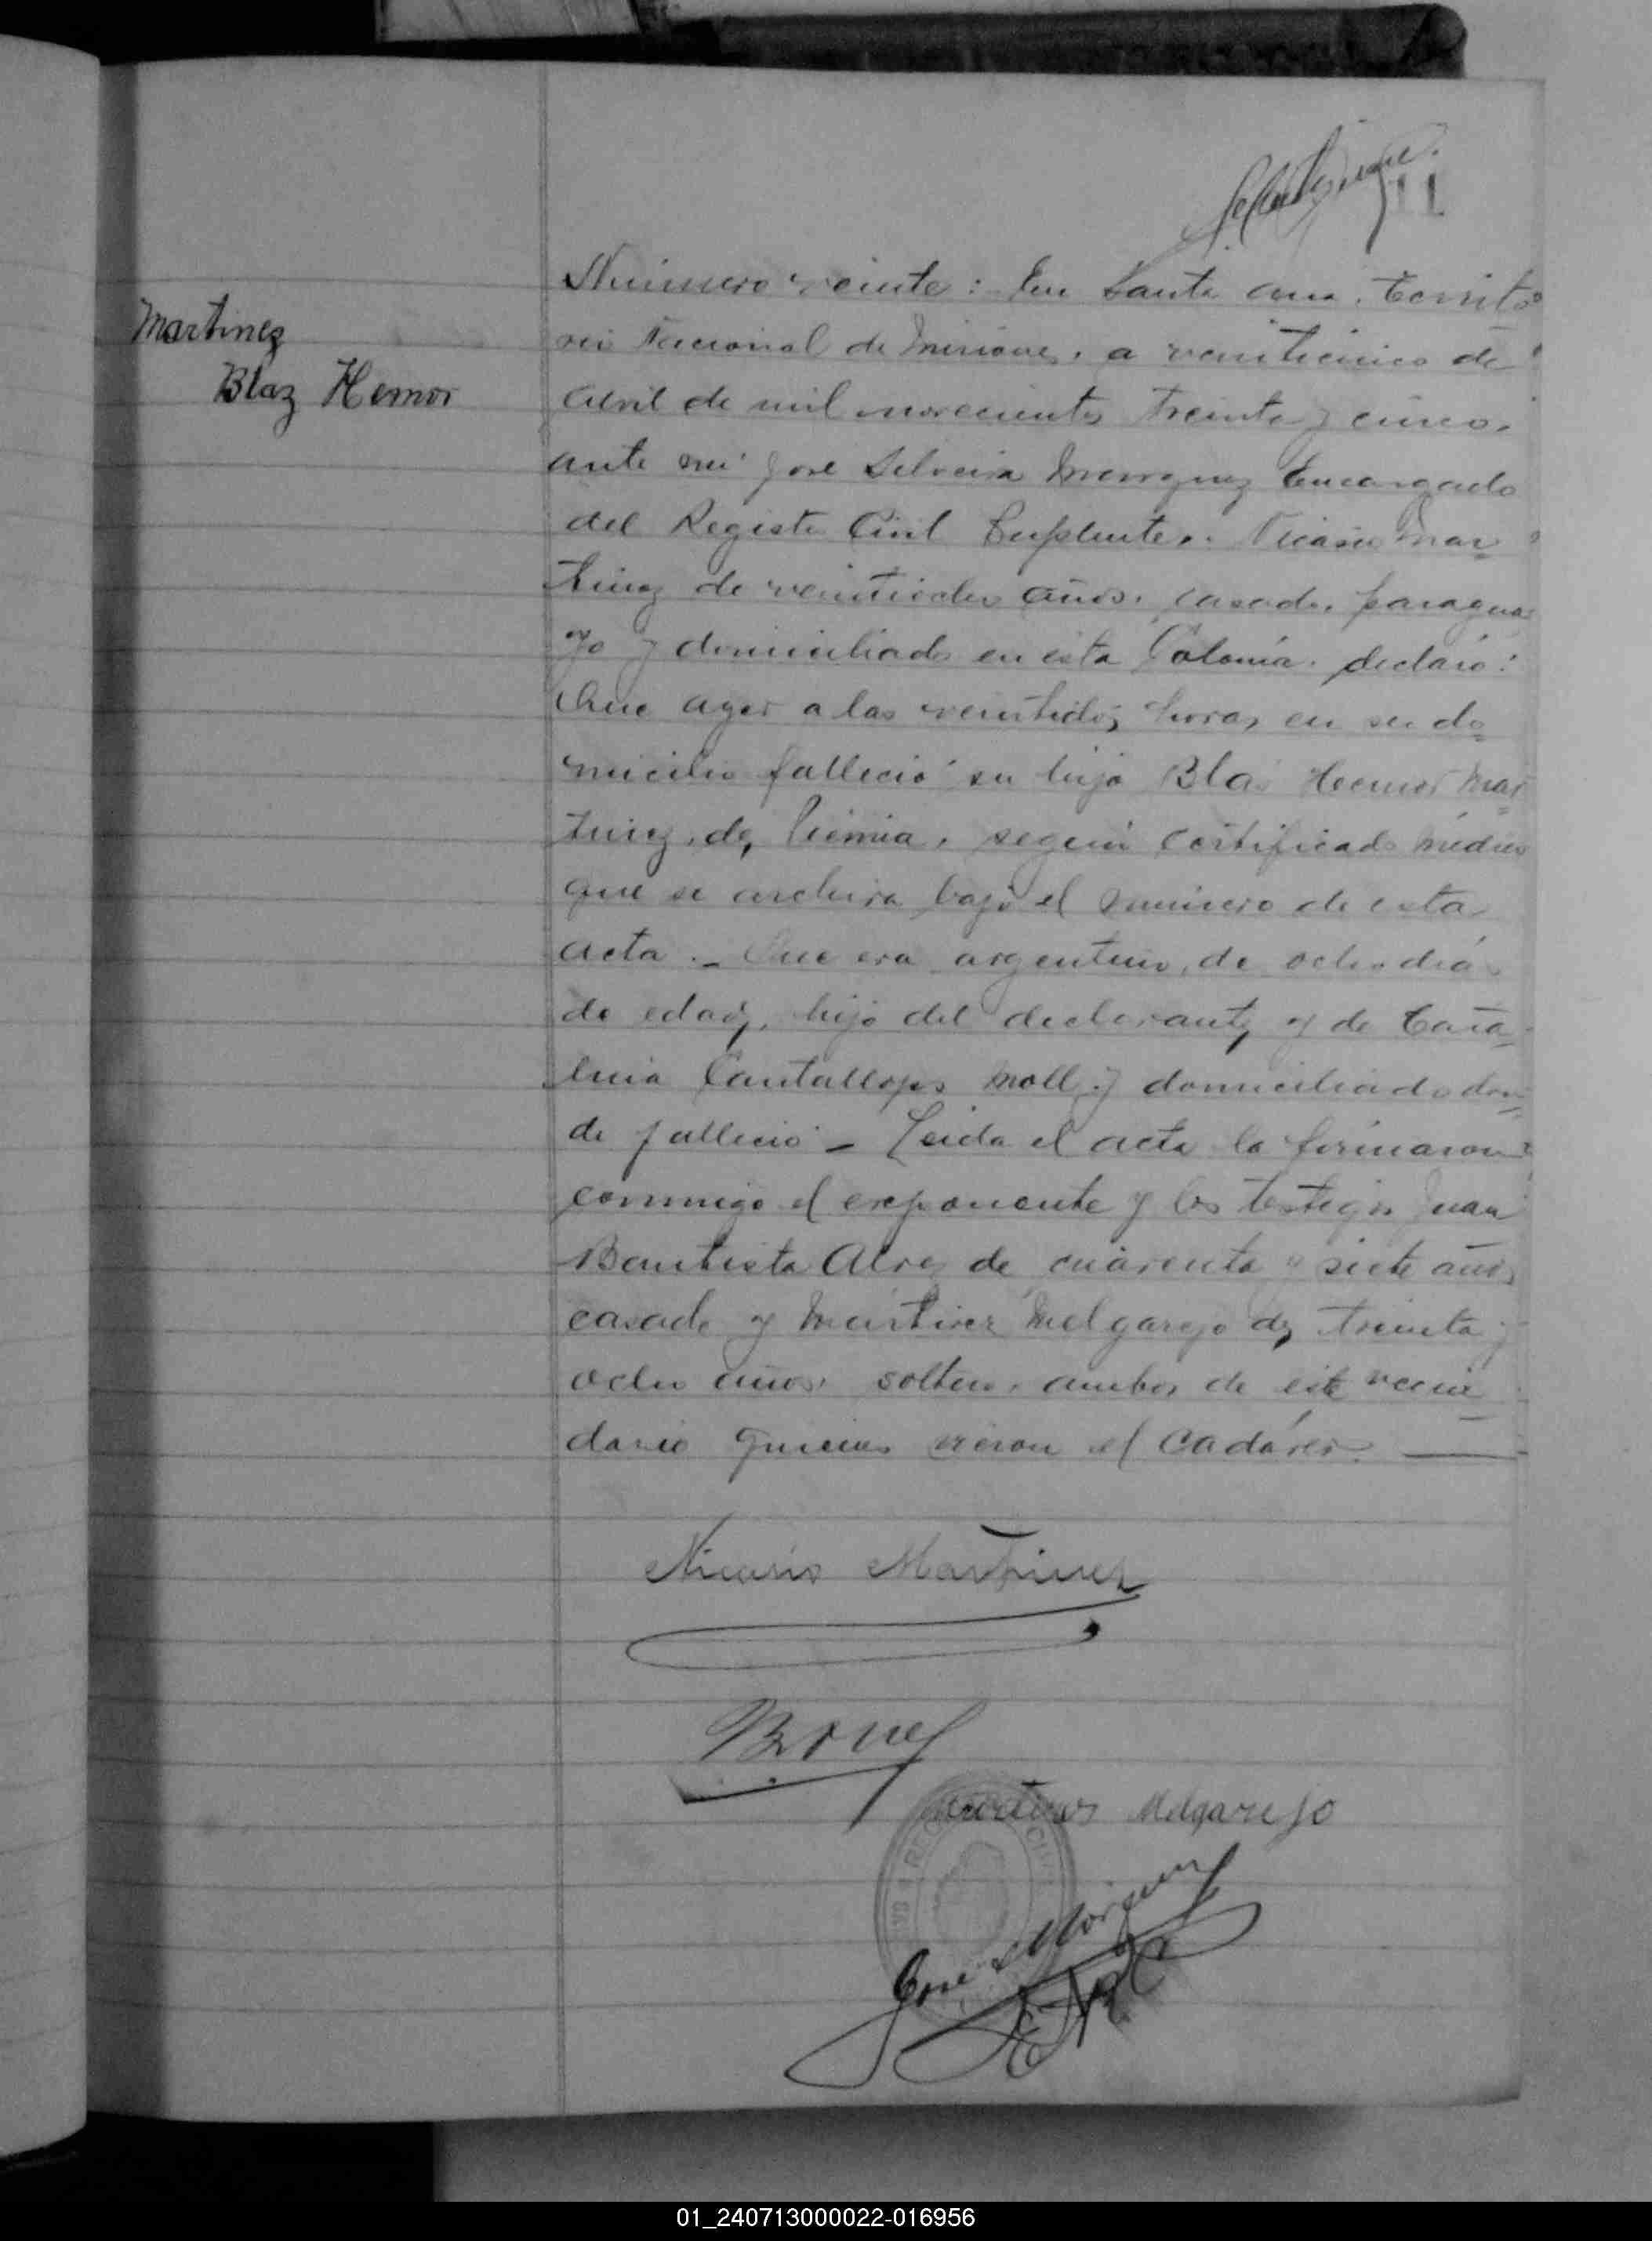 11
Martinez
Blaz Hemor
Número veinte: En Santa Ana, Territo
rio Nacional de Misiones, a veinticinco de
Abril de mil novecientos treinta y cinco,
ante mi José Silveira Marquez Encargado
del Registro Civil Suplente, Nicasio Mar
tinez de veintiocho años, casado, paragua
yo y domiciliado en esta Colonia, declaró:
Que ayer a las veintidos horas en su do
micilio falleció su hijo Blas Hemor Mar
tinez, de, según certificado médico
que se archiva bajo el número de esta
acta._ Que era argentino, de ocho dias
de edad, hijo del declarante y de Cata
lina Cantallops Moll y domiciliado don
de falleció _ Leida el acta la firmaron
conmigo el exponente y los testigos Juan
Bautista Alves de cuarenta y siete años
casado y Martirez Melgarejo de treinta y
ocho años, soltero, ambos de este vecin
dario quienes vieron el Cadáver. —
Nicasio Martinez
Martires Melgarejo
José S Marquez
01_240713000022-016956